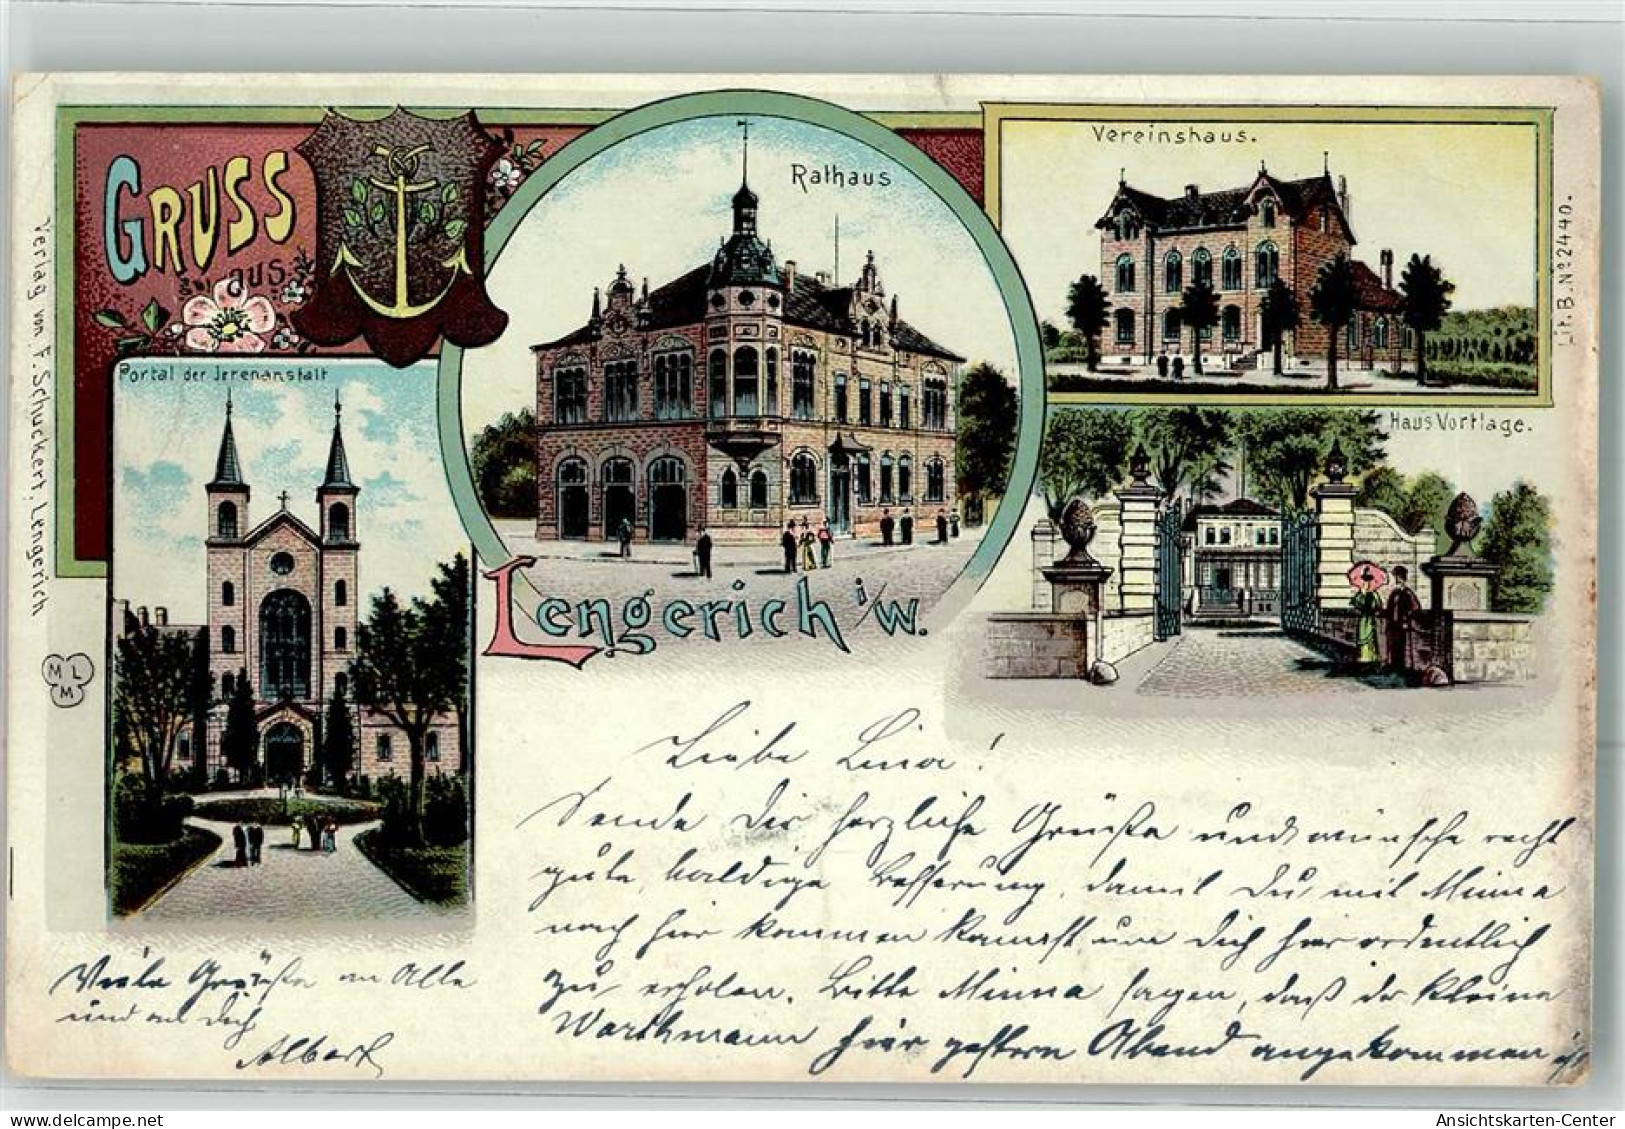 GRUSS
aus
Rathaus
Vereinshaus.
Portal der Jerenanstalt
Haus Vortlage.
Lengerich i/W.
Verlag von F. Schuckert, Lengerich
M L M
Lit. B. No. 2440.
Liebe Lina!
Sende Dir herzliche Grüße und wünsche recht
gute, baldige Besserung, damit Du mit Minna
nach hier kommen kannst um Dich hier ordentlich
zu erholen. Bitte Minna sagen, daß der kleine
Workmann hier gestern Abend angekommen ist
Viele Grüße an Alle
und an Dich
Albert
Ansichtskarten-Center